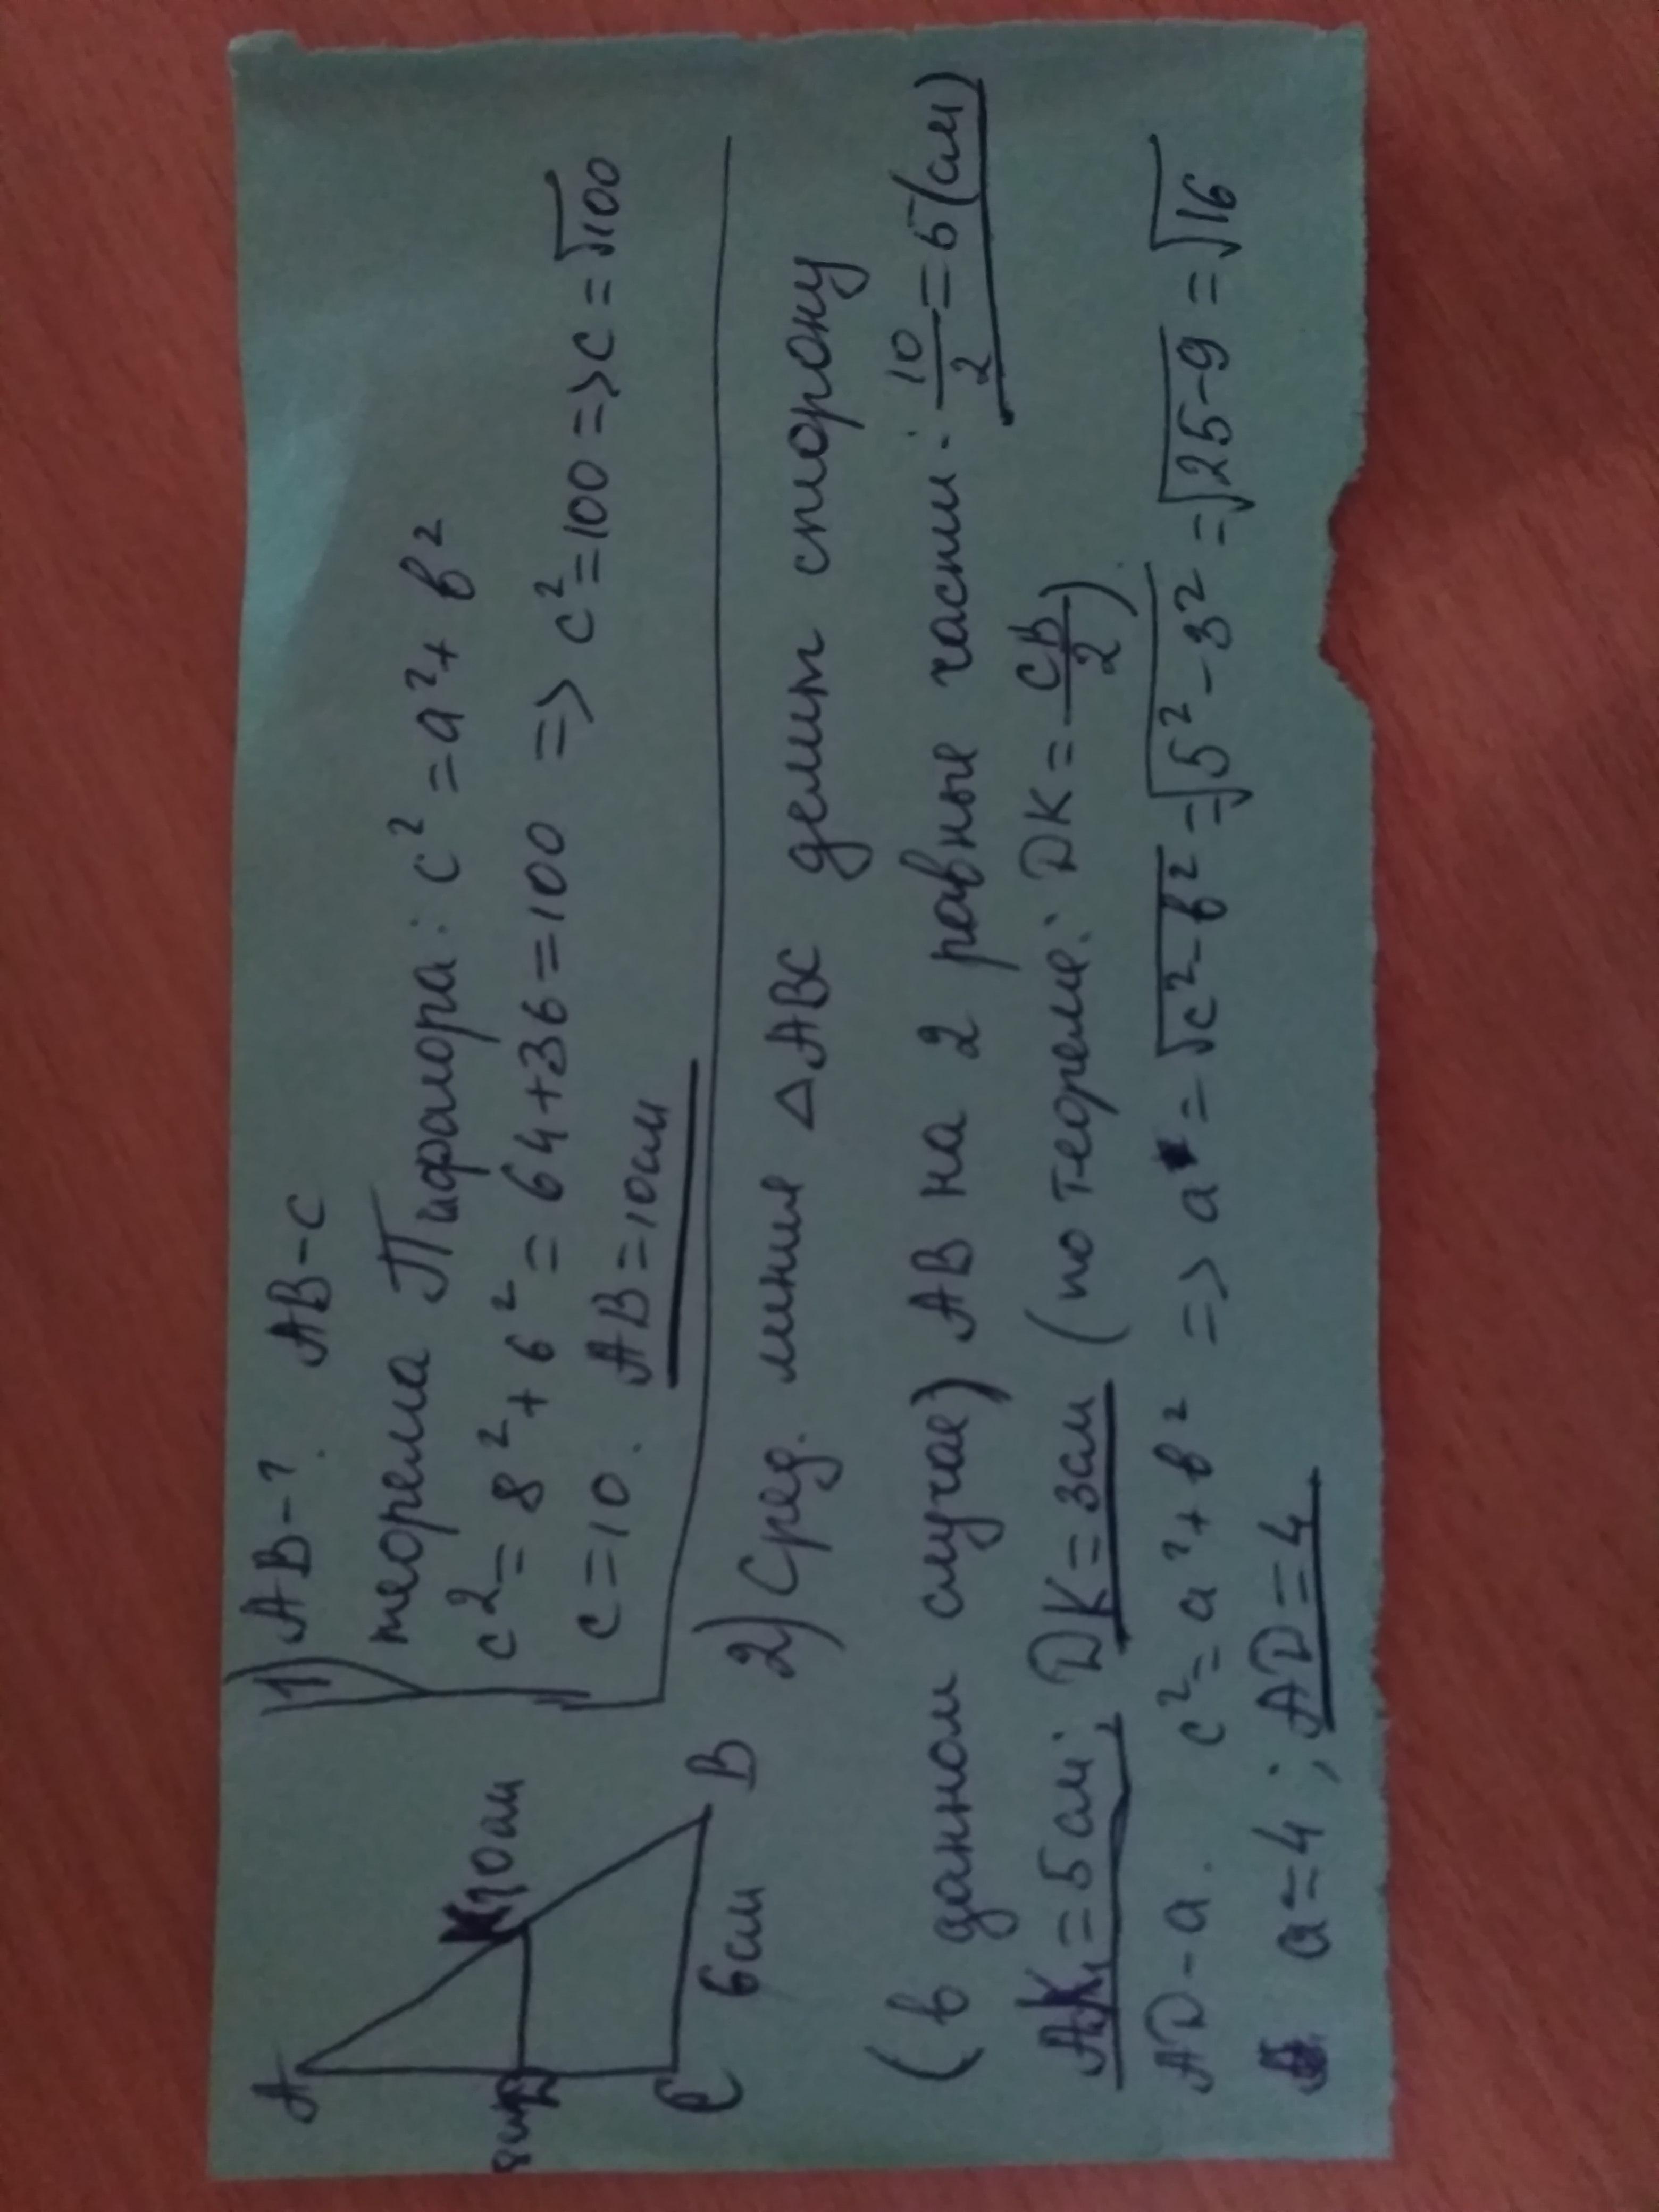 1) AB-? AB-c
теорема Пифагора: c² = a² + b²
c² = 8² + 6² = 64+36=100 => c²=100 => c=√100
c=10. AB=10см
A
K 10см
8см D
C
6см
B
2) Сред. линия △ABC делит сторону
(в данном случае) AB на 2 равные части: 10/2 = 5(см)
AK=5см; DK=3см (по теореме: DK = CB/2)
AD-a. c²=a²+b² => a = √c²-b² = √5²-3² = √25-9 = √16
a=4; AD=4